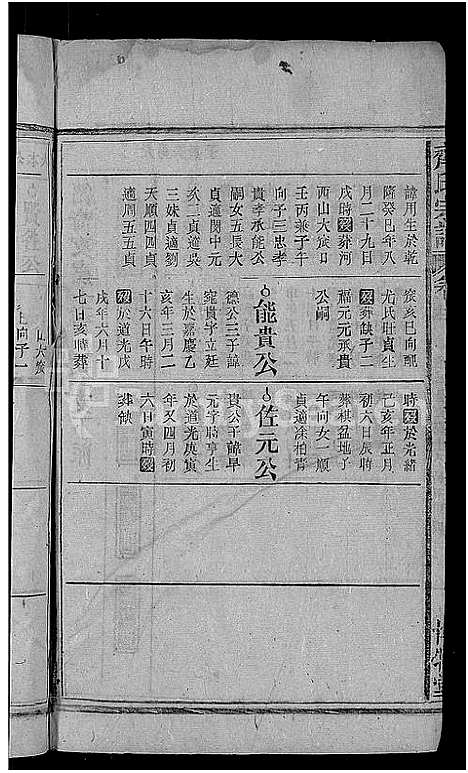 諱用生於乾
隆癸巳年八
月二十九日
戌時歿葬河
西山大㘭口
壬丙兼子午
向子三忠孝
貴孝承能公
嗣女五長大
貞適閔中元
次二貞適吳
三妹貞適劉
天順四四貞
適周五五貞
癸亥巳向配
尤氏壯貞生
歿葬缺子二
福元元丞貴
公嗣
能貴公
德公三子諱
寵貴字立廷
生於嘉慶乙
亥年三月二
十六日午時
歿於道光戊
戌年六月十
七日亥時葬
時歿於光緒
己亥年正月
初六日辰時
葬棋盆地子
午向女一順
貞適涂柏青
佐元公
貴公子諱早
元字時亨生
於道光庚寅
年又四月初
六日寅時歿
葬缺